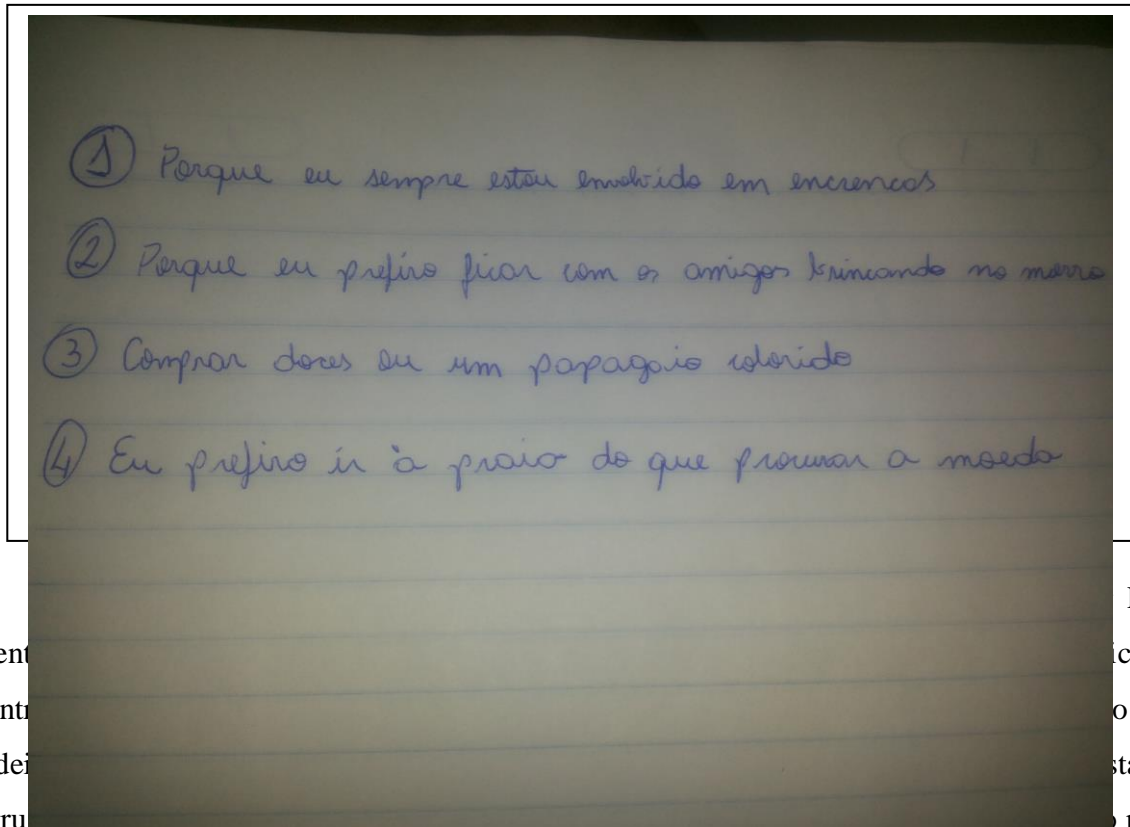 1 Porque eu sempre estou envolvido em encrencas
2 Porque eu prefiro ficar com os amigos brincando no morro
3 Comprar doces ou um papagaio colorido
4 Eu prefiro ir à praia do que procurar a moeda